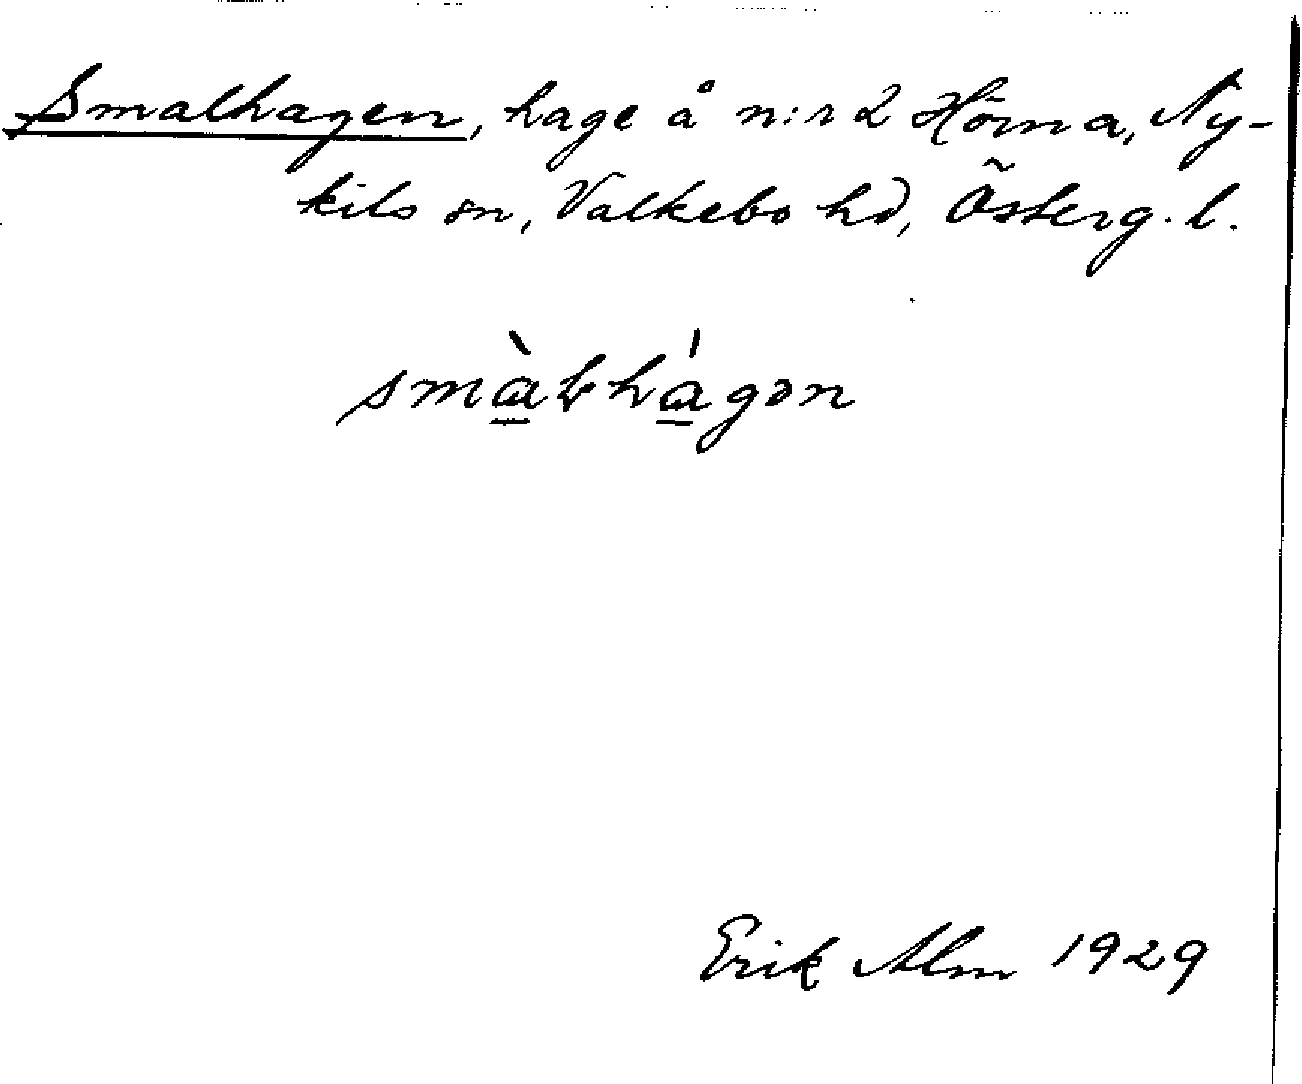 Smalhagen, hage å n:r 2 Hörna, Ny-
kils sn, Valkebo hd, Österg. l.
smàłhágən
Erik Alm 1929